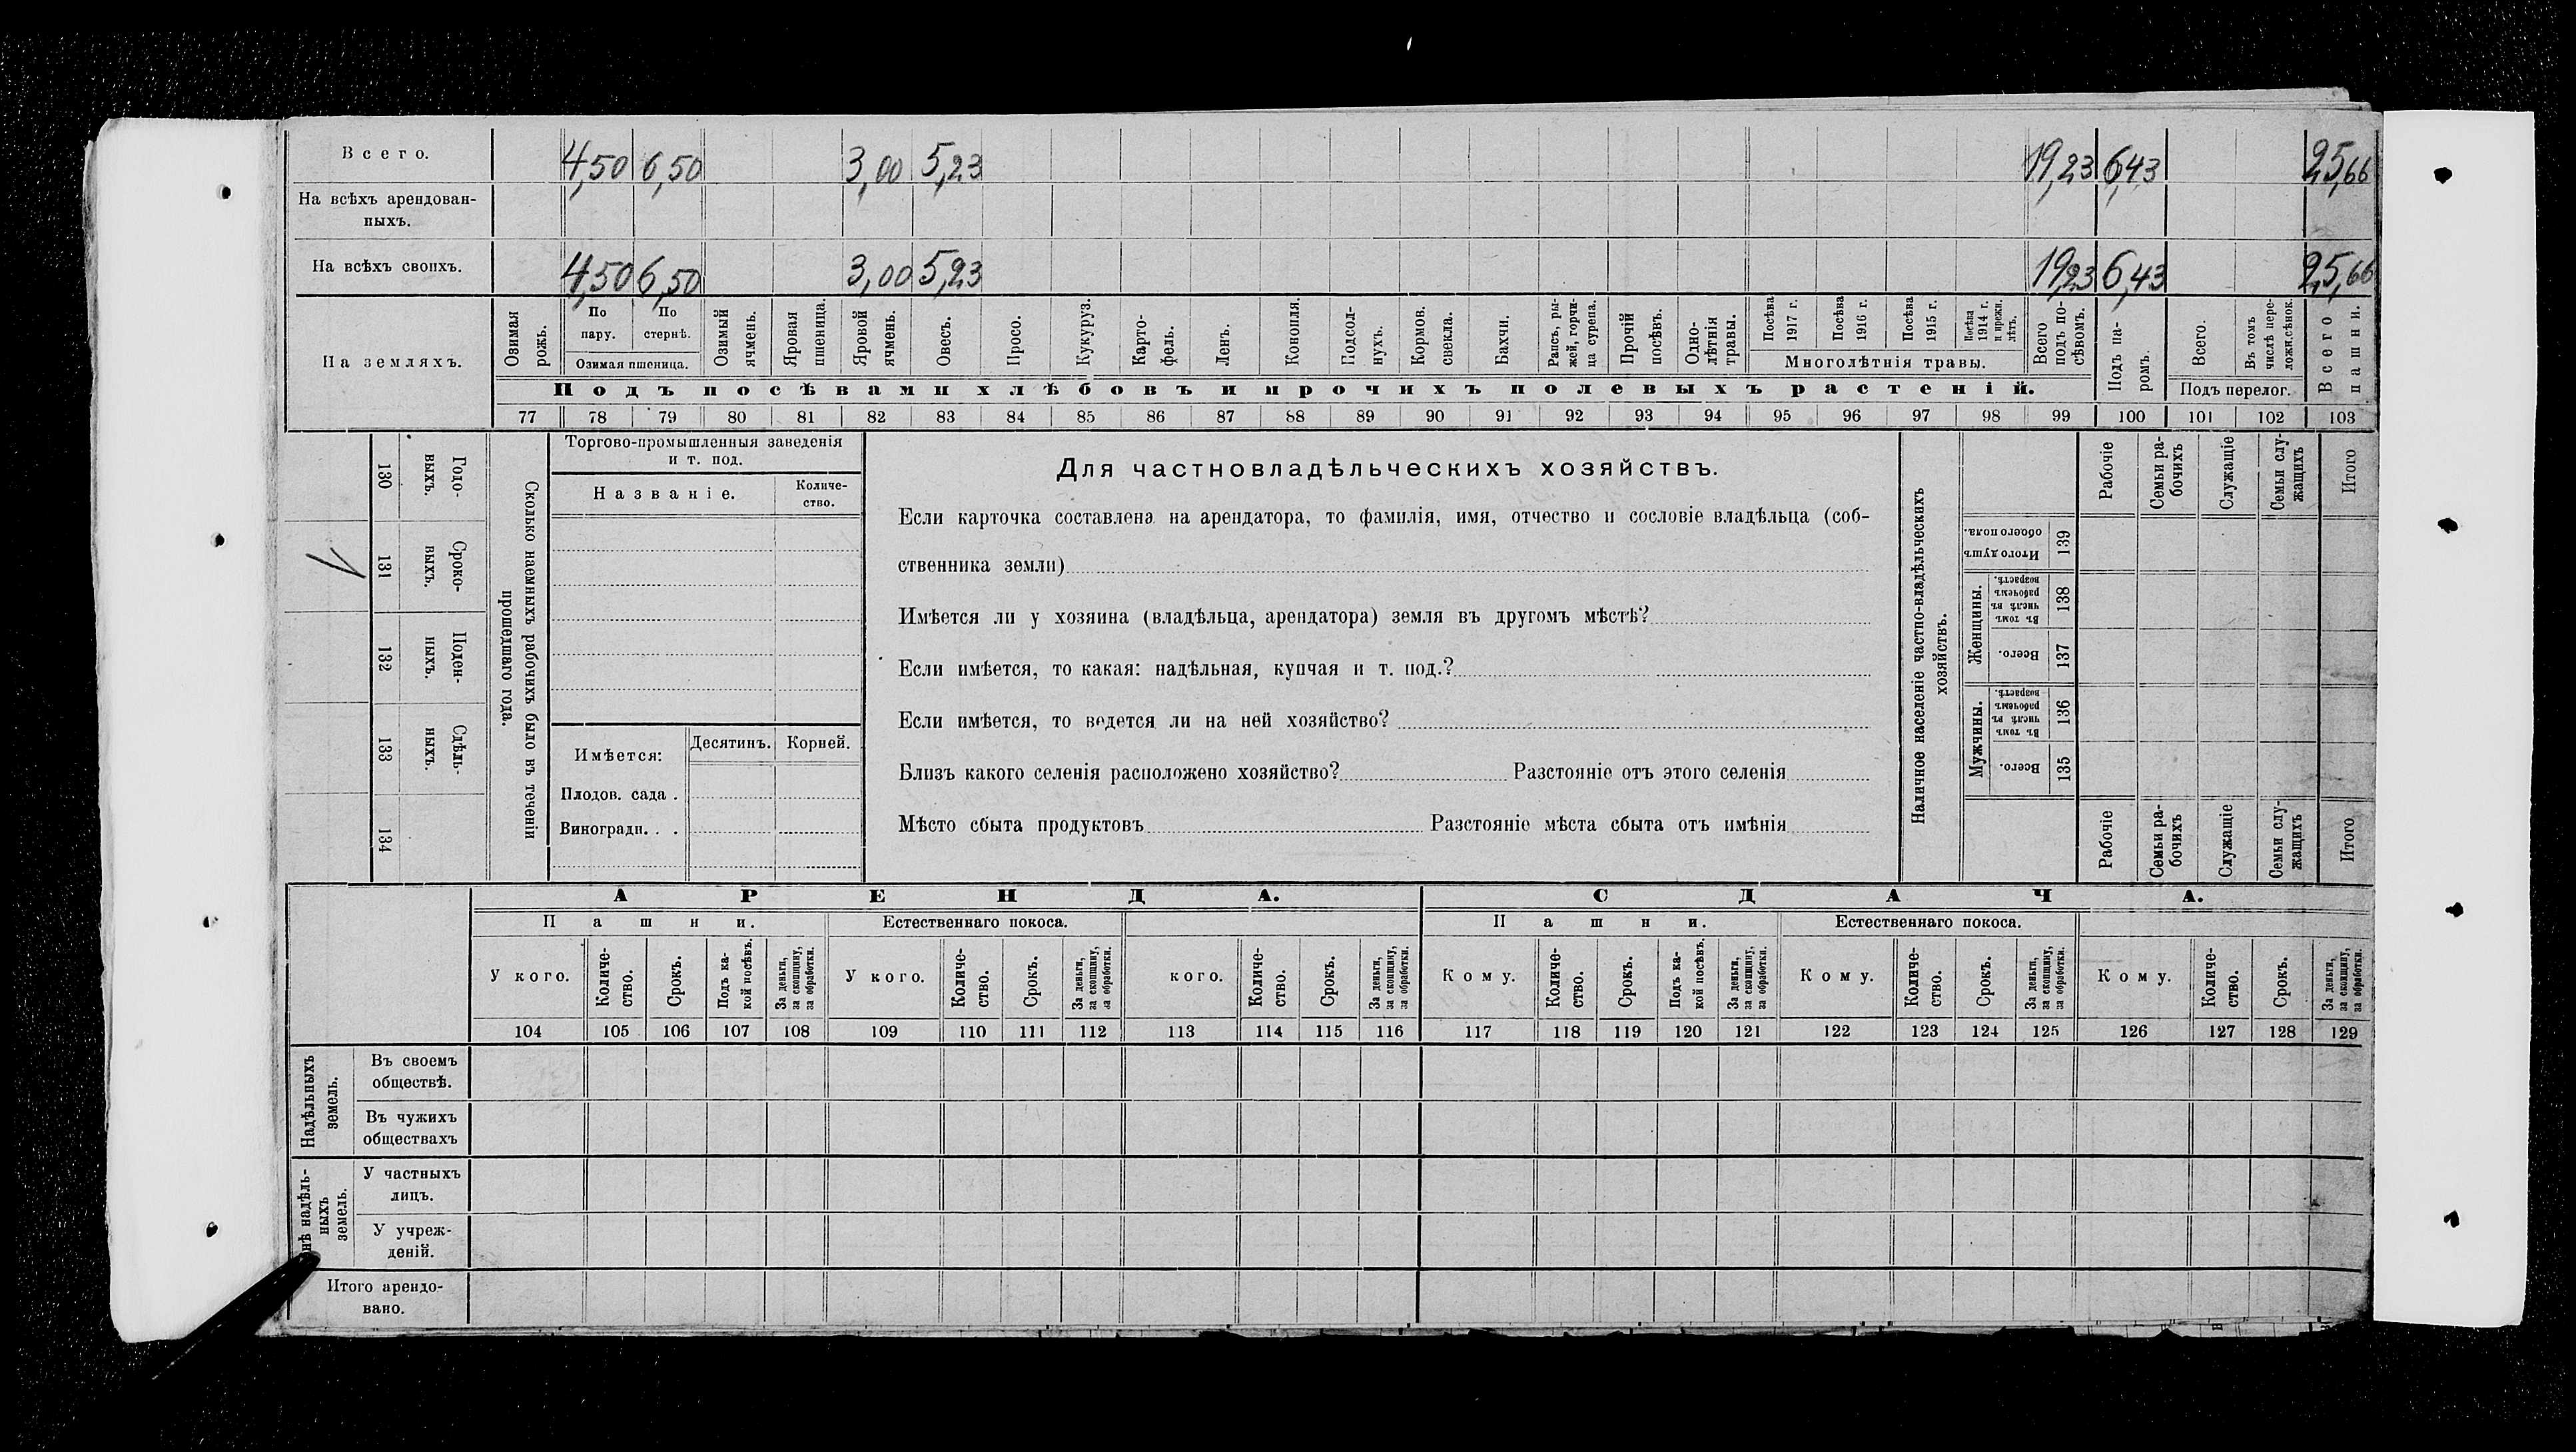 Всего. 4,50 6,50 3,00 5,23 19,23 6,43 25,66
На всѣхъ арендован-
ныхъ.
На всѣхъ своихъ. 4,50 6,50 3,00 5,23 19,23 6,43 25,66
На земляхъ.
Озимая рожь.
По пару.
По стернѣ.
Озимая пшеница.
Озимый ячмень.
Яровая пшеница.
Яровой ячмень.
Овесъ.
Просо.
Кукуруз.
Карто-
фель.
Ленъ.
Конопля.
Подсол-
нухъ.
Кормов.
свекла.
Бахчи.
Рапсъ, ры-
жей, горчи-
ца сурепа.
Прочій
посѣвъ.
Одно-
лѣтнія
травы.
Посѣва
1917 г.
Посѣва
1916 г.
Посѣва
1915 г.
Посѣва
1914 г.
и прежн.
лѣтъ.
Многолѣтнія травы.
Всего
подъ по-
сѣвомъ.
Подъ па-
ромъ.
Всего.
Въ томъ
числѣ пере-
ложн.сѣнок.
Подъ перелог.
Всего
пашни.
Подъ посѣвами хлѣбовъ и прочихъ полевыхъ растеній.
77 78 79 80 81 82 83 84 85 86 87 88 89 90 91 92 93 94 95 96 97 98 99 100 101 102 103
130 Годо-
выхъ.
131 Сроко-
выхъ.
132 Поден-
ныхъ.
133 Сдѣль-
ныхъ.
134
Сколько наемныхъ рабочихъ было въ теченіи
прошедшаго года.
Торгово-промышленныя заведенія
и т. под.
Названіе.
Количе-
ство.
Имѣется:
Десятинъ. Корней.
Плодов. сада .
Виноградн. . .
Для частновладѣльческихъ хозяйствъ.
Если карточка составлена на арендатора, то фамилія, имя, отчество и сословіе владѣльца (соб-
ственника земли)
Имѣется ли у хозяина (владѣльца, арендатора) земля въ другомъ мѣстѣ?
Если имѣется, то какая: надѣльная, купчая и т. под.?
Если имѣется, то ведется ли на ней хозяйство?
Близъ какого селенія расположено хозяйство? Разстояніе отъ этого селенія
Мѣсто сбыта продуктовъ Разстояніе мѣста сбыта отъ имѣнія
Наличное населеніе частно-владѣльческихъ
хозяйствъ.
Рабочіе
Семьи ра-
бочихъ
Служащіе
Семьи слу-
жащихъ
Итого
Итого душъ
обоего пола.
139
Женщины.
Въ томъ
числѣ въ
рабочемъ
возрастѣ.
138
Всего.
137
Мужчины.
Въ томъ
числѣ въ
рабочемъ
возрастѣ.
136
Всего.
135
Рабочіе
Семьи ра-
бочихъ
Служащіе
Семьи слу-
жащихъ
Итого
АРЕНДА. СДАЧА.
Пашни. Естественнаго покоса. Пашни. Естественнаго покоса.
У кого.
Количе-
ство.
Срокъ.
Подъ ка-
кой посѣвъ.
За деньги,
за скопщину,
за обработки.
У кого.
Количе-
ство.
Срокъ.
За деньги,
за скопщину,
за обработки.
кого.
Количе-
ство.
Срокъ.
За деньги,
за скопщину,
за обработки.
Кому.
Количе-
ство.
Срокъ.
Подъ ка-
кой посѣвъ.
За деньги,
за скопщину,
за обработки.
Кому.
Количе-
ство.
Срокъ.
За деньги,
за скопщину,
за обработки.
Кому.
Количе-
ство.
Срокъ.
За деньги,
за скопщину,
за обработки.
104 105 106 107 108 109 110 111 112 113 114 115 116 117 118 119 120 121 122 123 124 125 126 127 128 129
Надѣльныхъ
земель.
Въ своемъ
обществѣ.
Въ чужихъ
обществахъ
нѣ надѣль-
ныхъ
земель.
У частныхъ
лицъ.
У учреж-
деній.
Итого арендо-
вано.